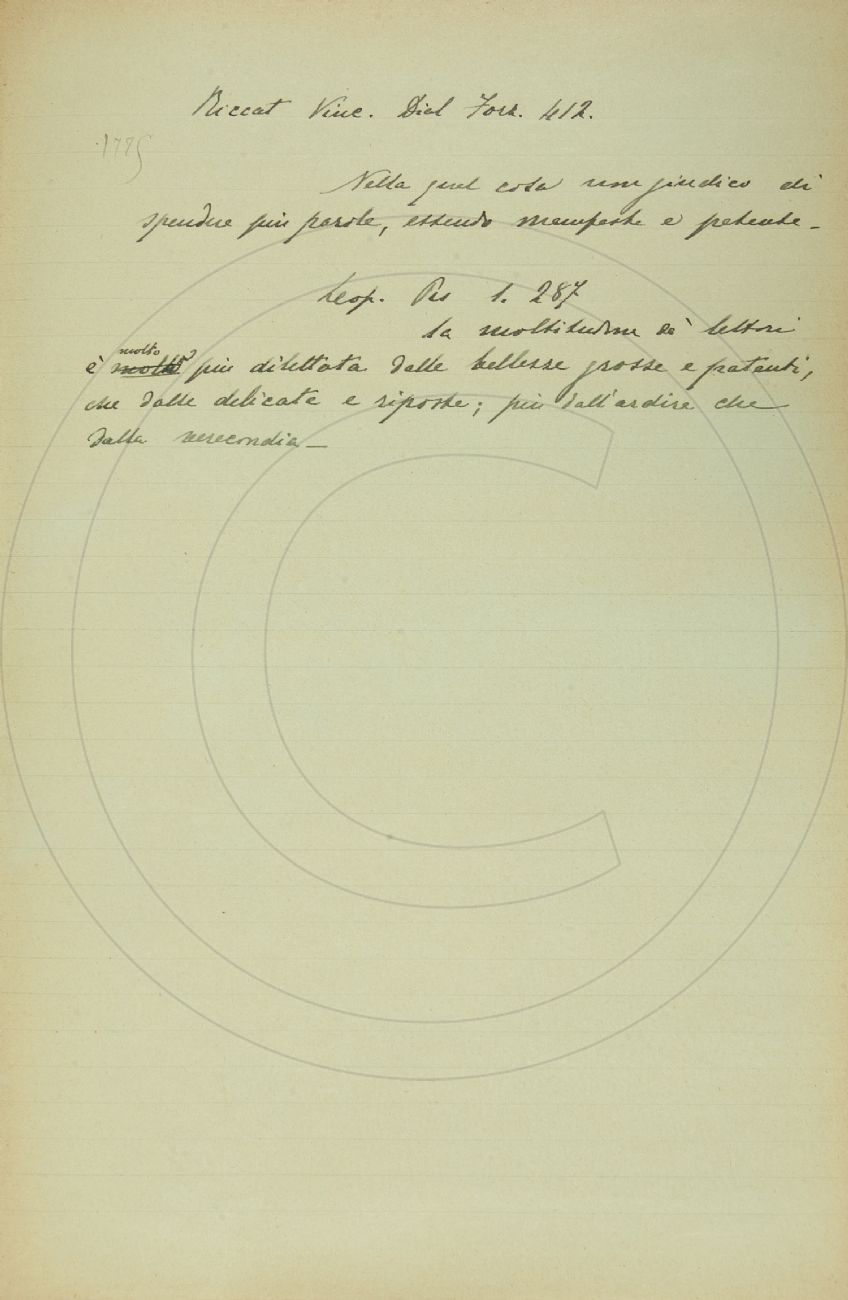 Riccat Vinc. Dial Forz. 412.
1775
Nella qual cosa non giudico di
spendere più parole, essendo manifesta e patente –
Leop. Pros 1. 287
La moltitudine de' lettori
è molto più dilettata dalle bellezze grosse e patenti,
che dalle delicate e riposte; più dall'ardire che
dalla verecondia –